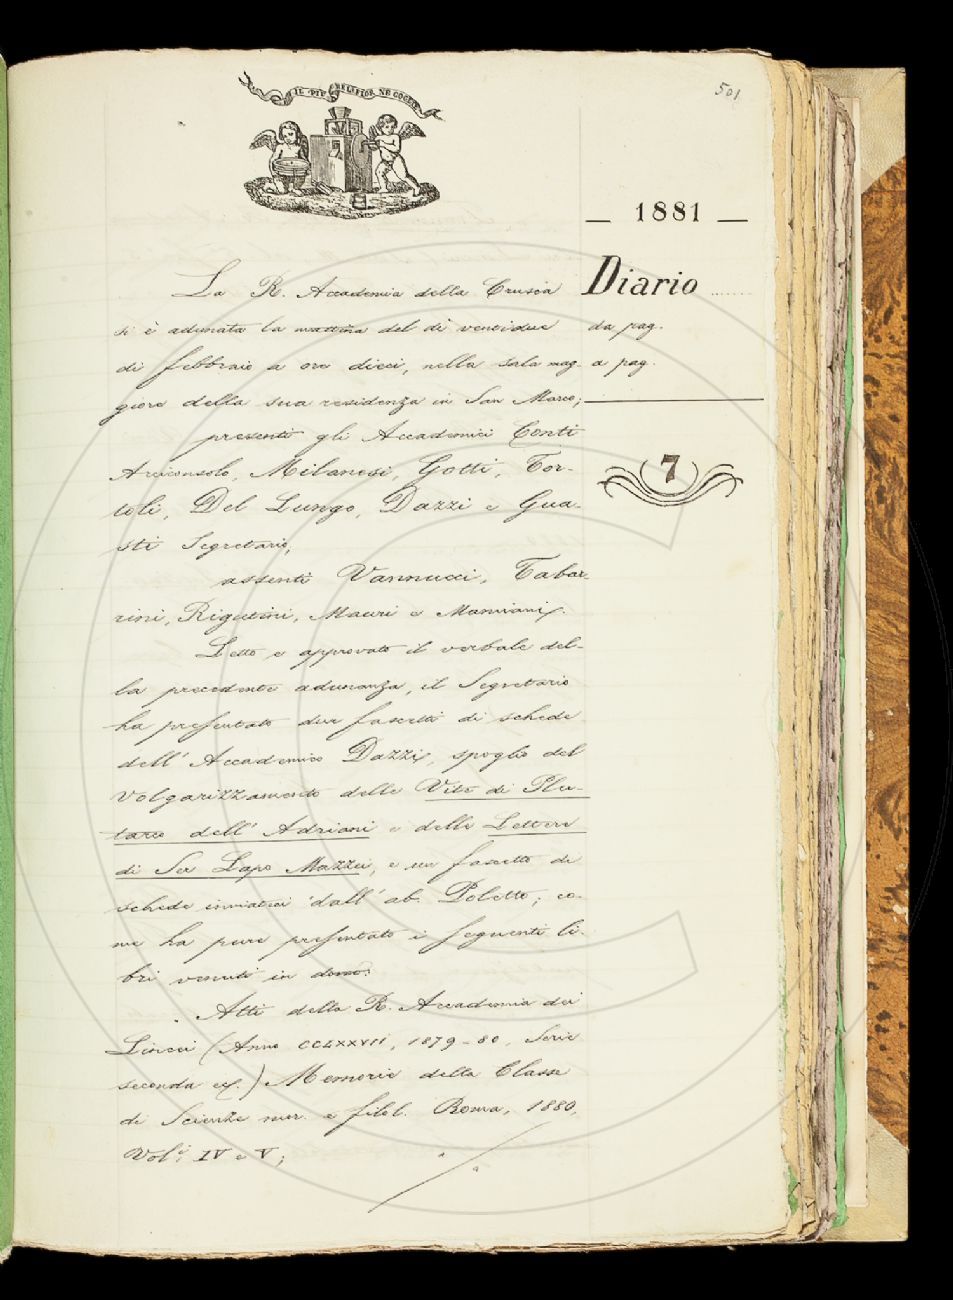 501
IL PIÙ BEL FIOR NE COGLIE
— 1881 —
Diario
da pag.
a pag.
7
La R. Accademia della Crusca
si è adunata la mattina del dì ventidue
di febbraio a ore dieci, nella sala mag-
giore della sua residenza in San Marco;
presenti gli Accademici Conti
Arciconsolo, Milanesi, Gotti, Tor-
toli, Del Lungo, Dazzi e Gua-
sti Segretario,
assenti Vannucci, Tabar-
rini, Rigutini, Mauri e Mamiani.
Letto e approvato il verbale del-
la precedente adunanza, il Segretario
ha presentato due fascetti di schede
dell' Accademico Dazzi, spoglio del
volgarizzamento delle Vite di Plu-
tarco dell' Adriani e delle Lettere
di Ser Lapo Mazzei, e un fascetto di
schede inviateci dall' ab. Poletto; co-
me ha pure presentato i seguenti li-
bri venuti in dono:
Atti della R. Accademia dei
Lincei (Anno CCLXXVII, 1879-80, Serie
seconda) Memorie della Classe
di Scienze mor. e filol. Roma, 1880,
Vol.i IV e V;